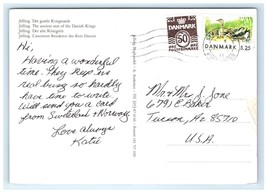 Jelling. Det gamle Kongesæde
Jelling. The ancient seat of the Danish Kings
Jelling. Der alte Königssitz
Jelling. L'ancienne Residence des Rois Danois
Hi,
Having a wonderful
time. They keep us
real busy so hardly
have time to write
will send you a card
from Switzerland + Norway
Love always
Katie
DANMARK
50
DANMARK
5.25
Mr + Mrs S. Jone
6791 E. Baker
Tucson, Az 85710
U.S.A.